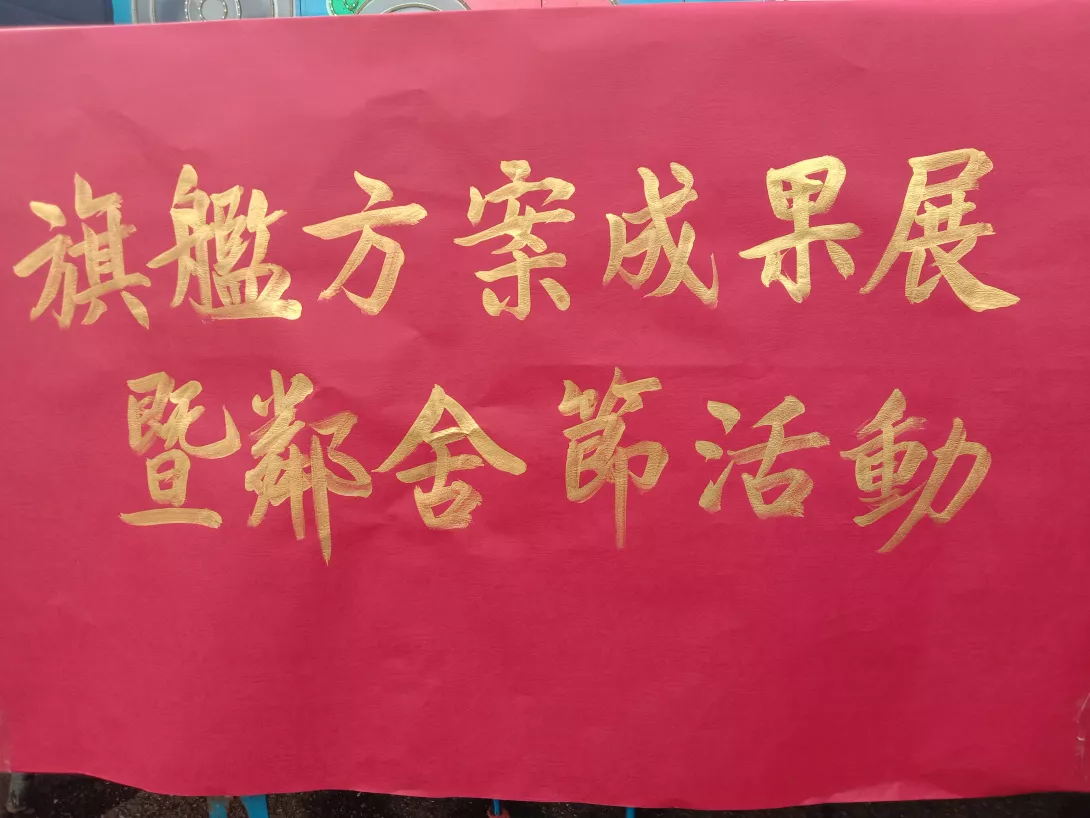 旗艦方案成果展
暨鄰舍節活動